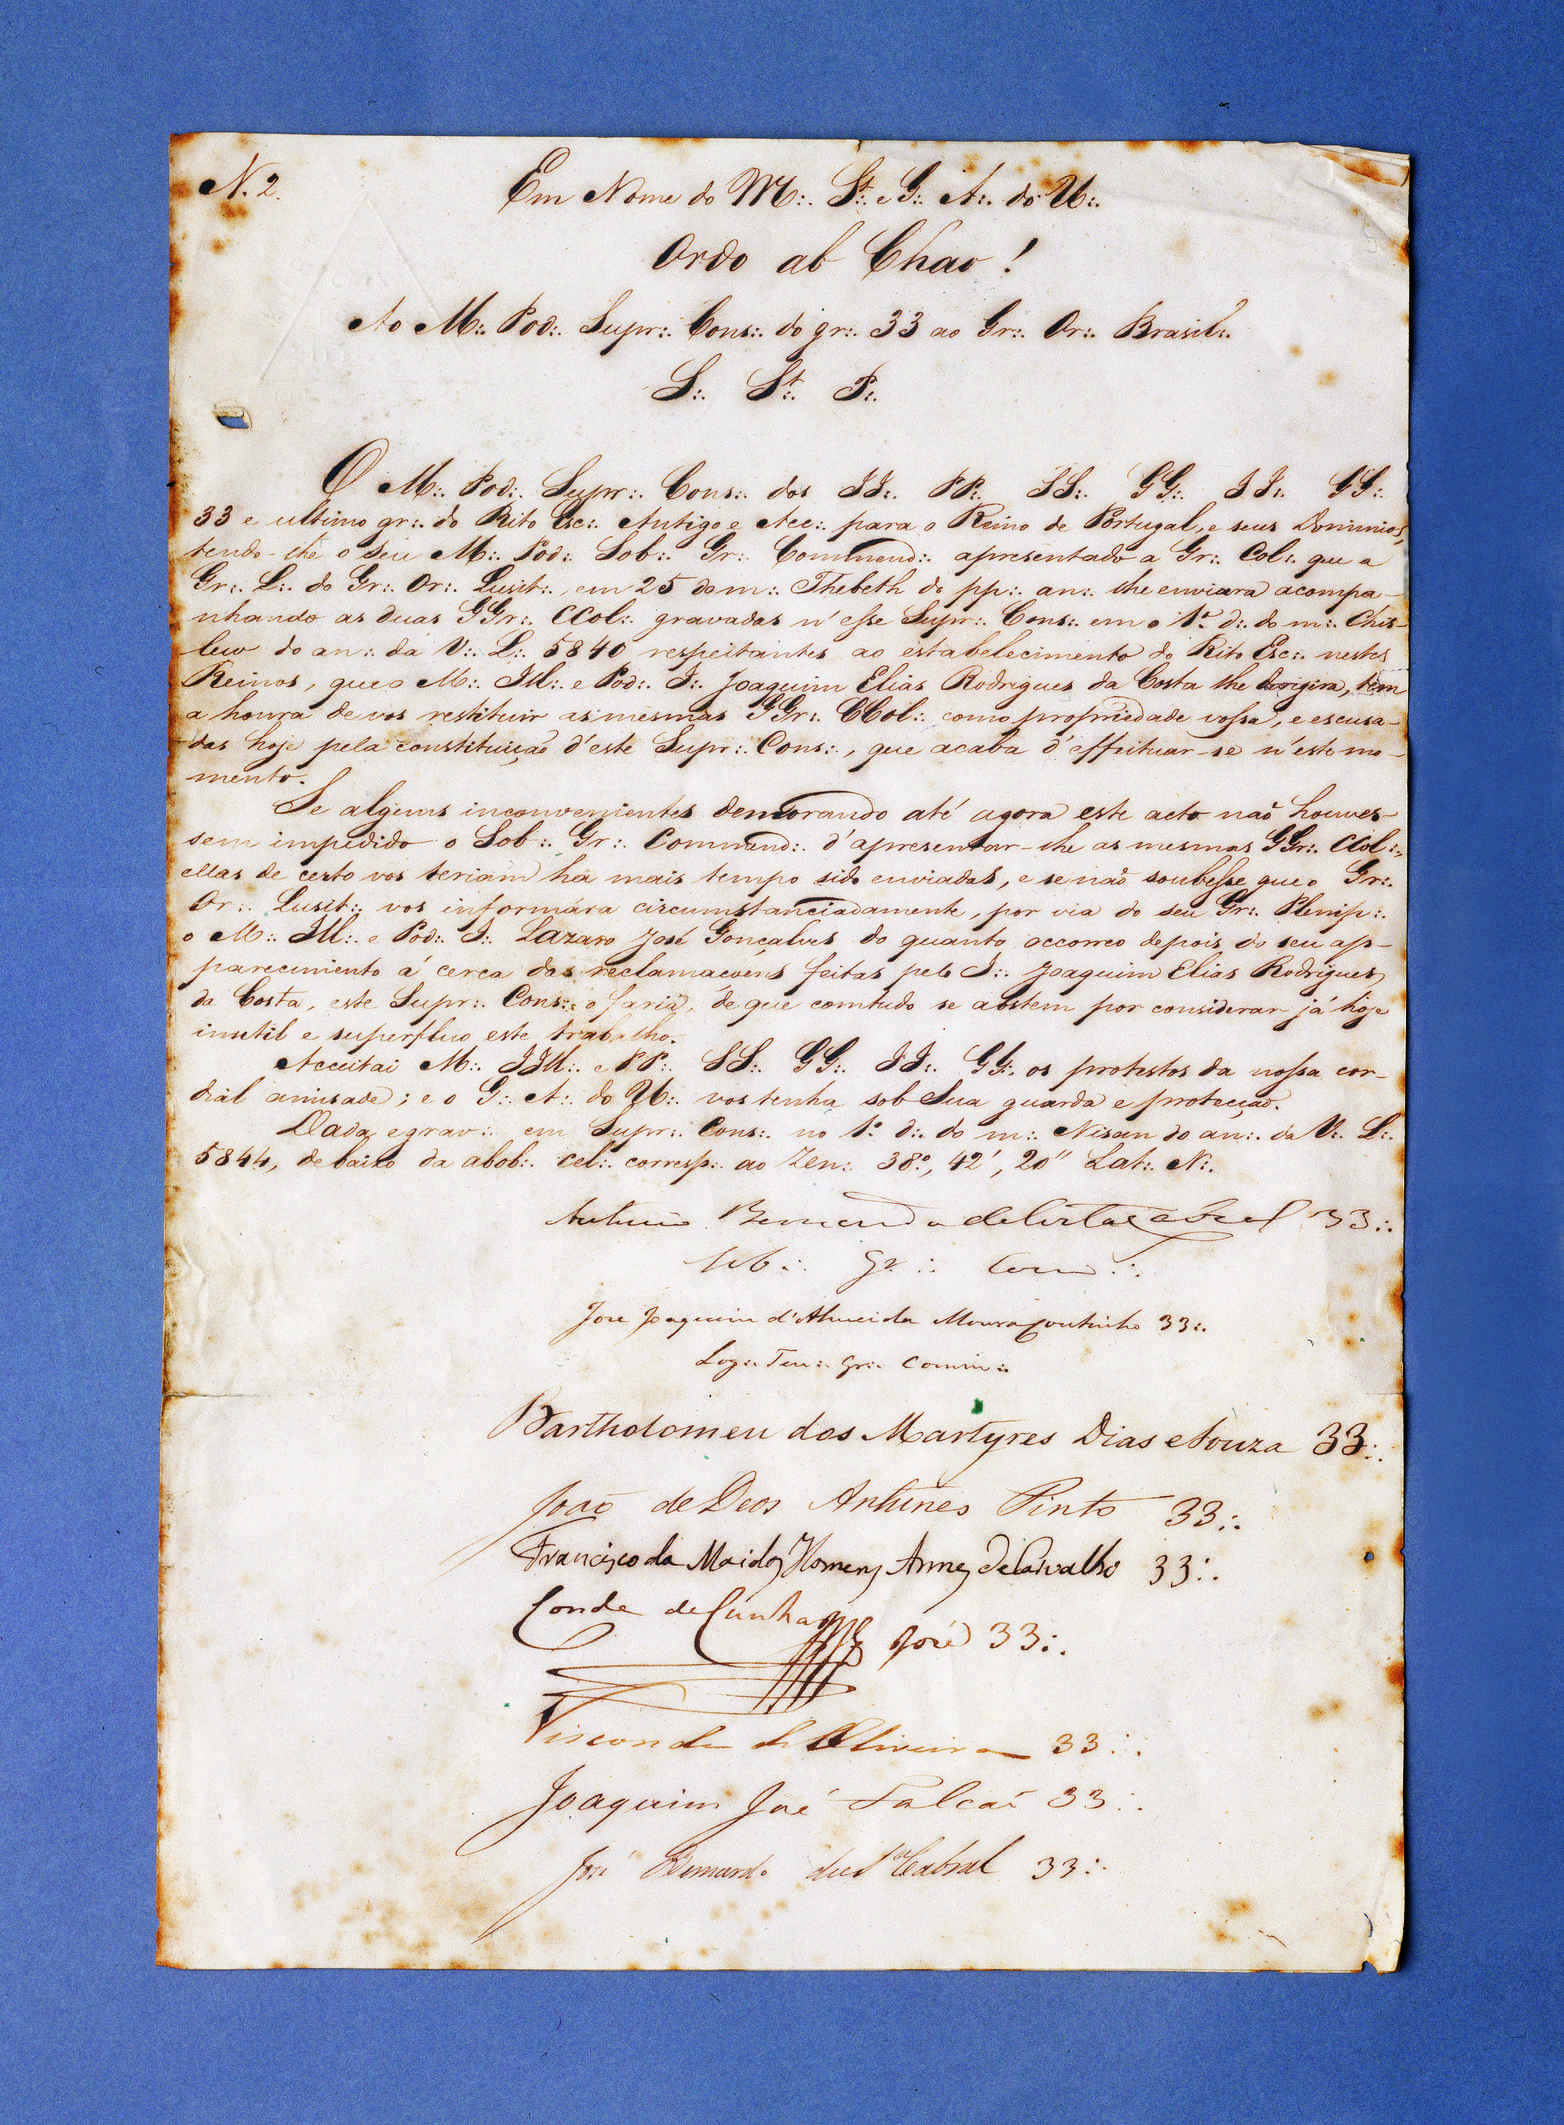 N. 2.
Em Nome do M∴ St∴ e G∴ A∴ do U∴
Ordo ab Chao!
Ao M∴ Pod∴ Supr∴ Cons∴ do gr∴ 33 ao Gr∴ Or∴ Brasil∴
S∴ St∴ P∴
O M∴ Pod∴ Supr∴ Cons∴ dos II∴ PP∴ SS∴ GG∴ II∴ GG∴
33 e ultimo gr∴ do Rito Esc∴ Antigo e Acc∴ para o Reino de Portugal, e seus Dominios,
tendo-lhe o seu M∴ Pod∴ Sob∴ Gr∴ Commend∴ apresentado a Gr∴ Col∴ que a
Gr∴ L∴ do Gr∴ Or∴ Lusit∴, em 25 do m∴ Thebeth do pp∴ an∴ lhe enviara acompa-
nhando as duas GGr∴ CCol∴ gravadas n'esse Supr∴ Cons∴ em o 1º d∴ do m∴ Chis-
lew do an∴ da V∴ L∴ 5840 respeitantes ao estabelecimento do Rito Esc∴ nestes
Reinos, que o M∴ Ill∴ e Pod∴ I∴ Joaquim Elias Rodrigues da Costa lhe derigira, tem
a honra de vos restituir as mesmas GGr∴ CCol∴ como propriedade vossa, e escusa-
das hoje pela constituição d'este Supr∴ Cons∴, que acaba d'effeituar-se n'este mo-
mento.
Se alguns inconvenientes demorando até agora este acto naõ houves-
sem impedido o Sob∴ Gr∴ Commend∴ d'apresentar-lhe as mesmas GGr∴ CCol∴,
ellas de certo vos teriam ha mais tempo sido enviadas, e se naõ soubesse que o Gr∴
Or∴ Lusit∴ vos informára circumstanciadamente, por via do seu Gr∴ Plenip∴
o M∴ Ill∴ e Pod∴ I∴ Lazaro José Gonçalves do quanto occorreo depois do seu ap-
parecimento á cerca das reclamacoens feitas pelo I∴ Joaquim Elias Rodrigues
da Costa, este Supr∴ Cons∴ o faria, de que comtudo se abstem por considerar já hoje
inutil e superfluo este trabalho.
Acceitai M∴ IIll∴ e PP∴ SS∴ GG∴ II∴ GG∴ os protestos da nossa cor-
dial amisade; e o G∴ A∴ do U∴ vos tenha sob Sua guarda e protecçaõ.
Dada e grav∴ em Supr∴ Cons∴ no 1º d∴ do m∴ Nisan do an∴ da V∴ L∴
5844, debaixo da abob∴ cel∴ corresp∴ ao Zen∴ 38º, 42', 20" Lat∴ N∴
Antonio Bernardo da Costa Cabral 33∴
Sob∴ Gr∴ Com∴
Jose Joaquim d'Almeida Moura Coutinho 33∴
Log∴ Ten∴ Gr∴ Comm∴
Bartholomeu dos Martyres Dias e Souza 33∴
João de Deos Antunes Pinto 33∴
Francisco da Homem Annes de Carvalho 33∴
Conde da Cunha José 33∴
Visconde de Oliveira 33∴
Joaquim José Falcaõ 33∴
José Bernardo da Cabral 33∴